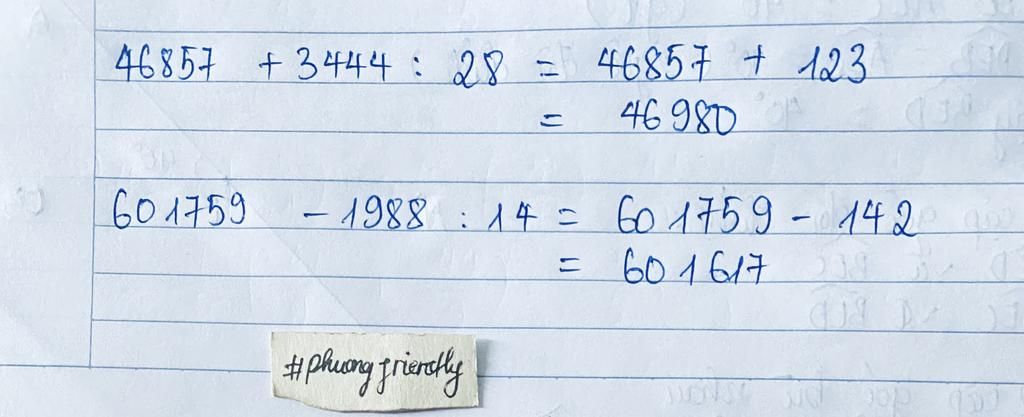 46857 + 3444 : 28 = 46857 + 123
= 46980
601759 - 1988 : 14 = 601759 - 142
= 601617
#phuong friendly